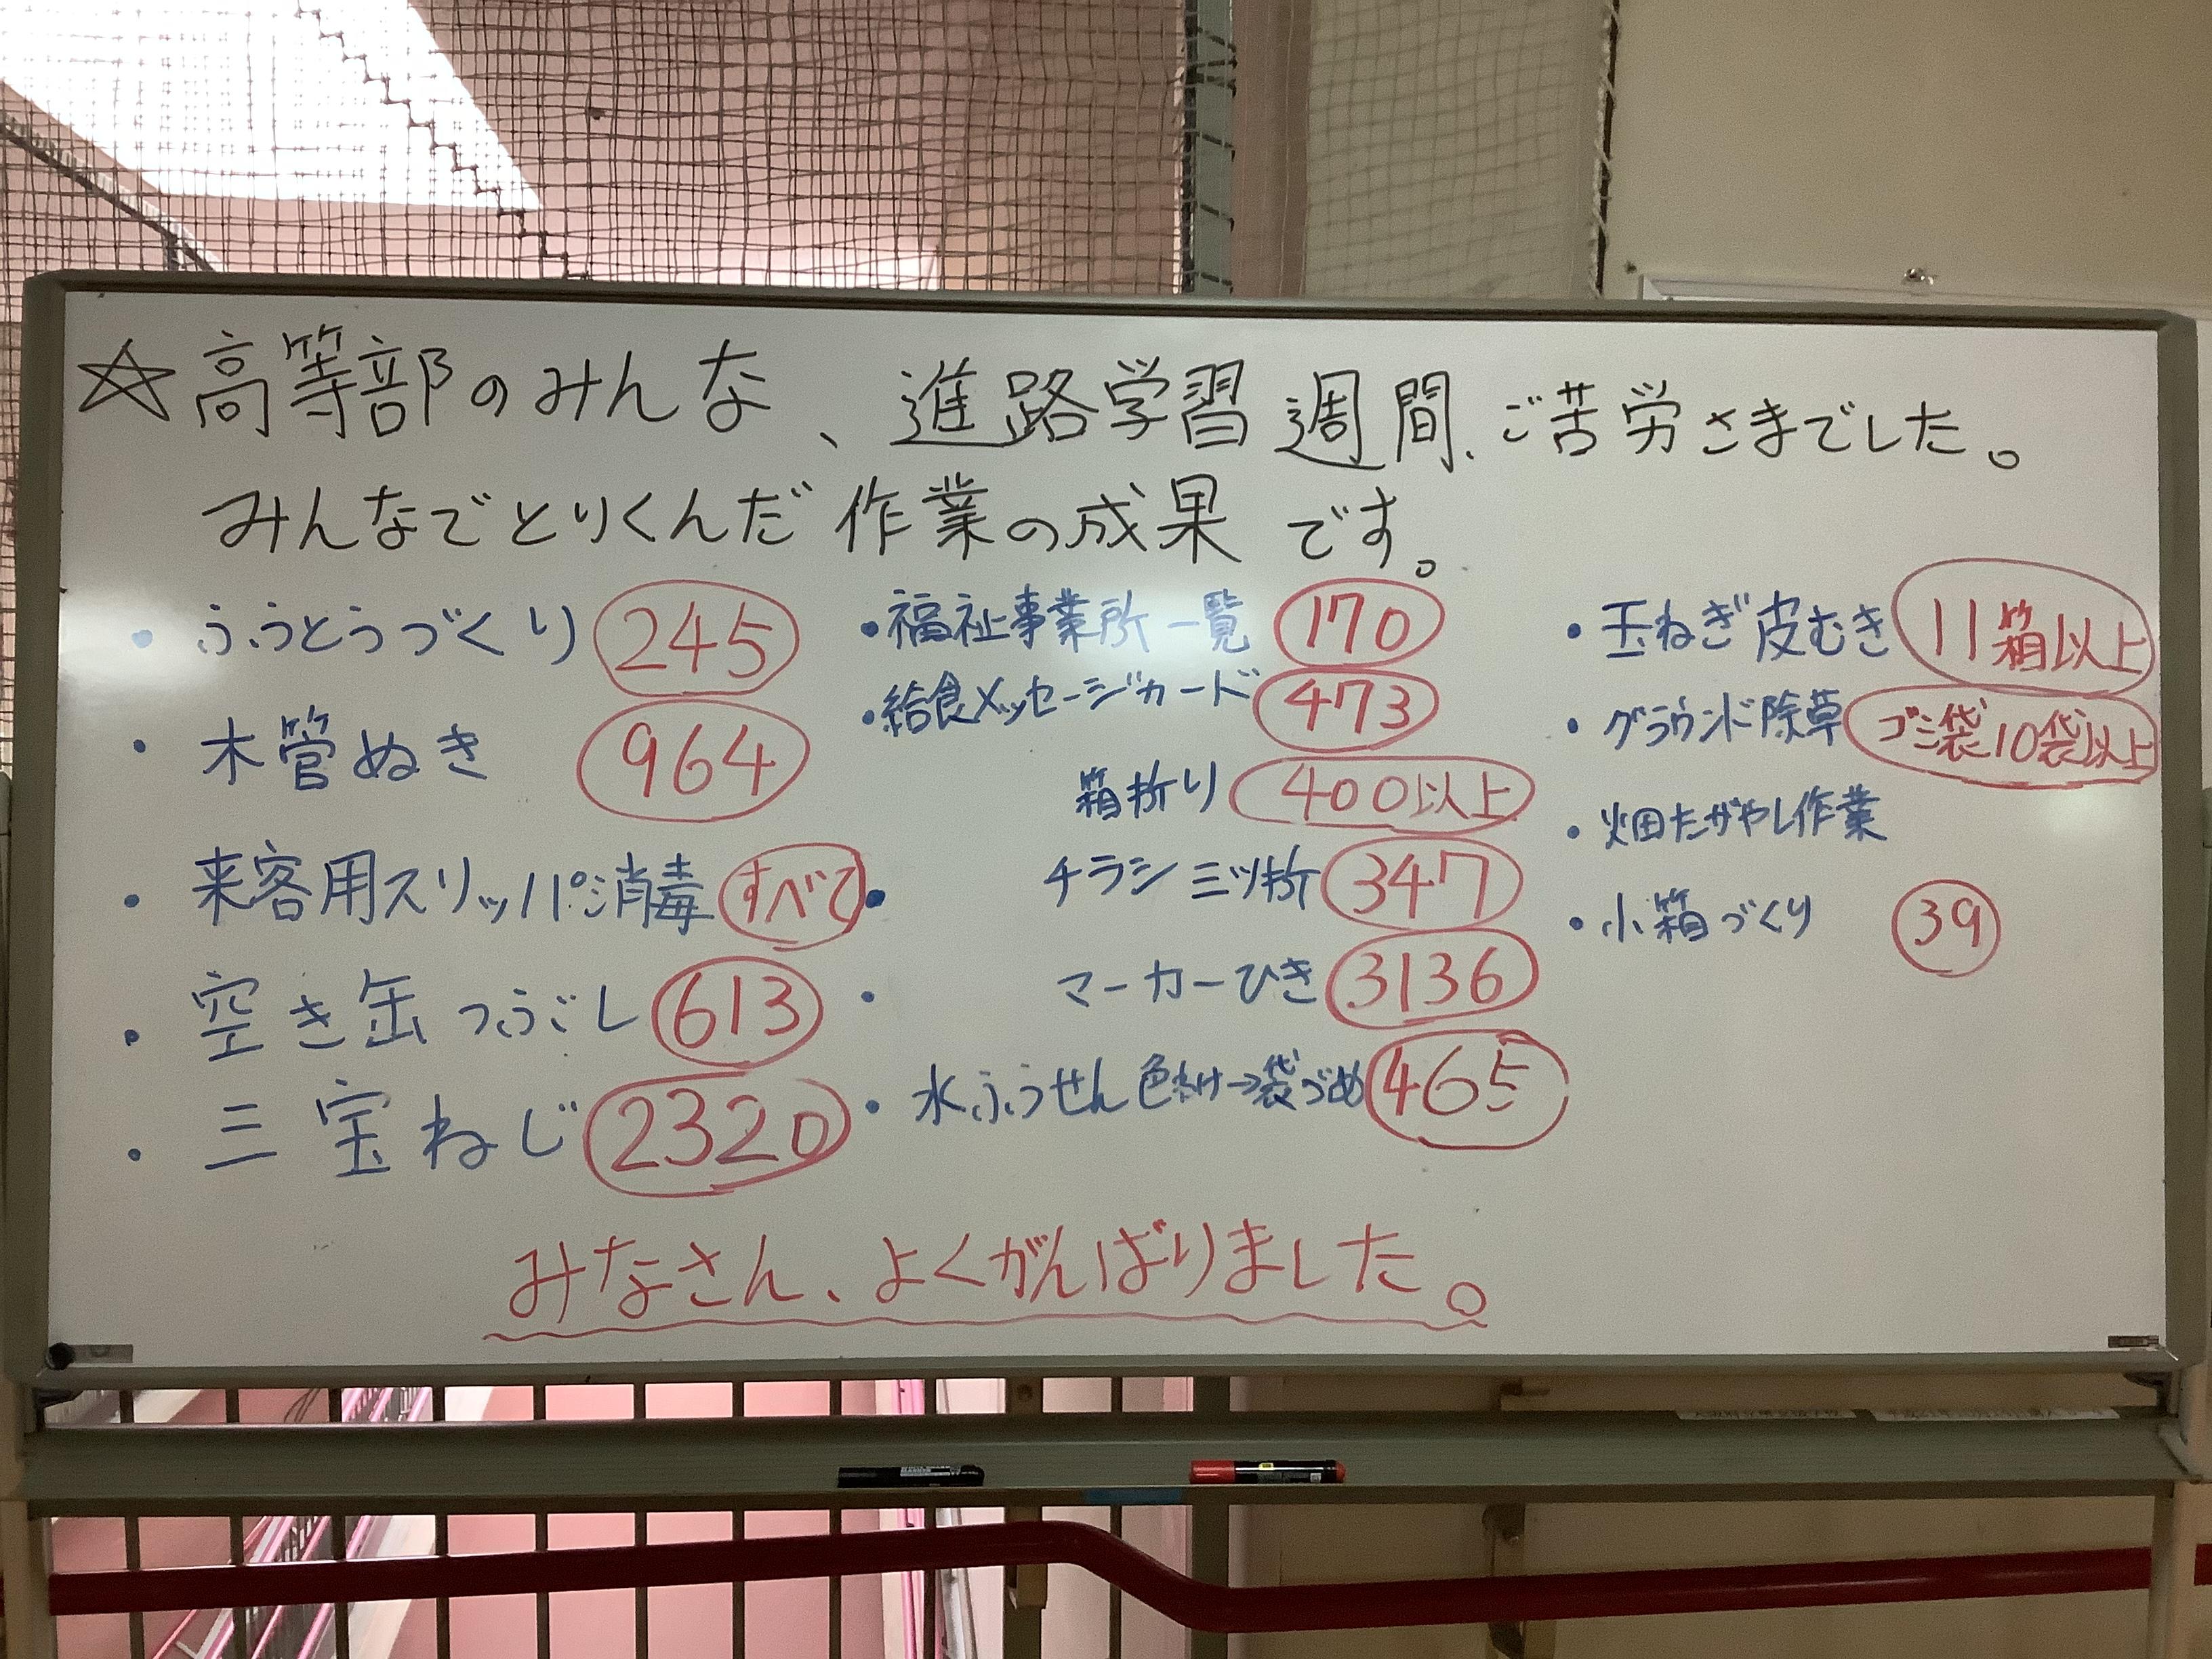 ☆高等部のみんな、進路学習週間、ご苦労さまでした。
みんなでとりくんだ作業の成果です。
・ふうとうづくり 245
・木管ぬき 964
・来客用スリッパ消毒 すべて
・空き缶つぶし 613
・三宝ねじ 2320
・福祉事業所一覧 170
・給食メッセージカード 473
箱折り 400以上
・チラシ三ツ折 347
・マーカーひき 3136
・水ふうせん色わけ→袋づめ 465
・玉ねぎ皮むき 11箱以上
・グラウンド除草 ゴミ袋10袋以上
・畑たがやし作業
・小箱づくり 39
みなさん、よくがんばりました。